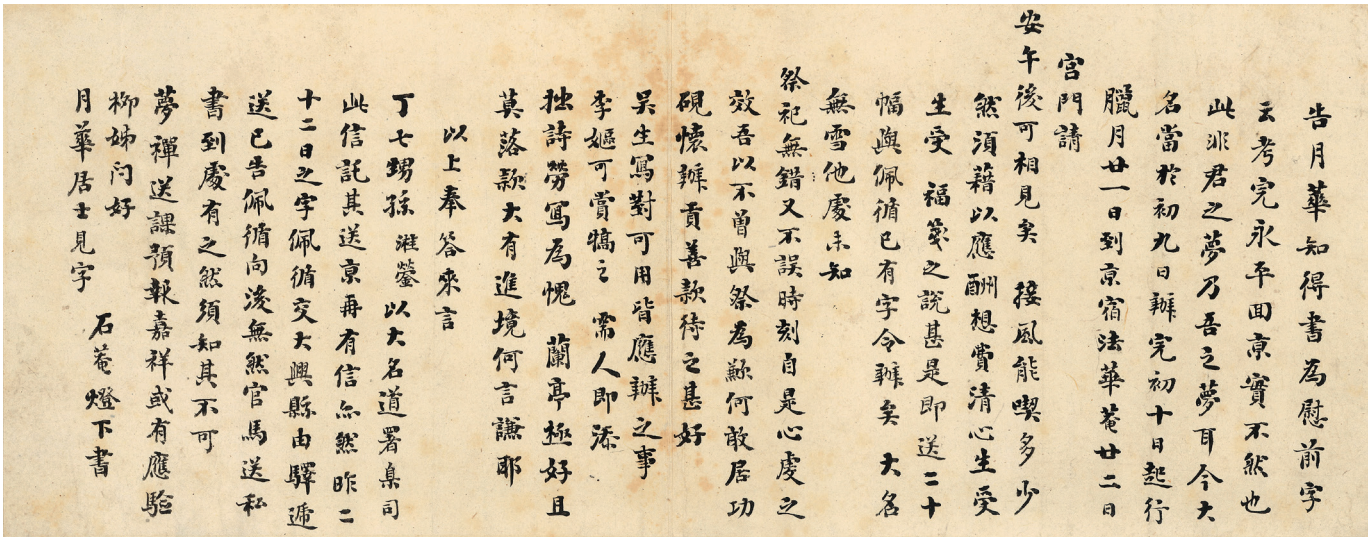 告月華知得書為慰前字
云考完永平回京實不然也
此非君之夢乃吾之夢耳今大
名當於初九日辦完初十日起行
臘月廿一日到京宿法華菴廿二日
宮門請
安午後可相見矣 接風能喫多少
然須藉以應酬想賞清心生受
生受 福箋之說甚是即送二十
幅與佩循已有字令辦矣 大名
無雪他處未知
祭祀無錯又不誤時刻自是心處之
效吾以不曾與祭為歉何敢居功
硯懷辦貢善款待之甚好
吳生寫對可用皆應辦之事
李嫗可賞犒之 需人即添
拙詩勞寫為愧 蘭亭極好且
莫落款大有進境何言謙耶
以上奉答來言
丁七甥孫 以大名道署臬司
此信託其送京再有信亦然昨二
十二日之字佩循交大興縣由驛遞
送已告佩循向後無然官馬送私
書到處有之然須知其不可
夢禪送課預報嘉祥或有應驗
柳姊问好
月華居士見字
石菴燈下書